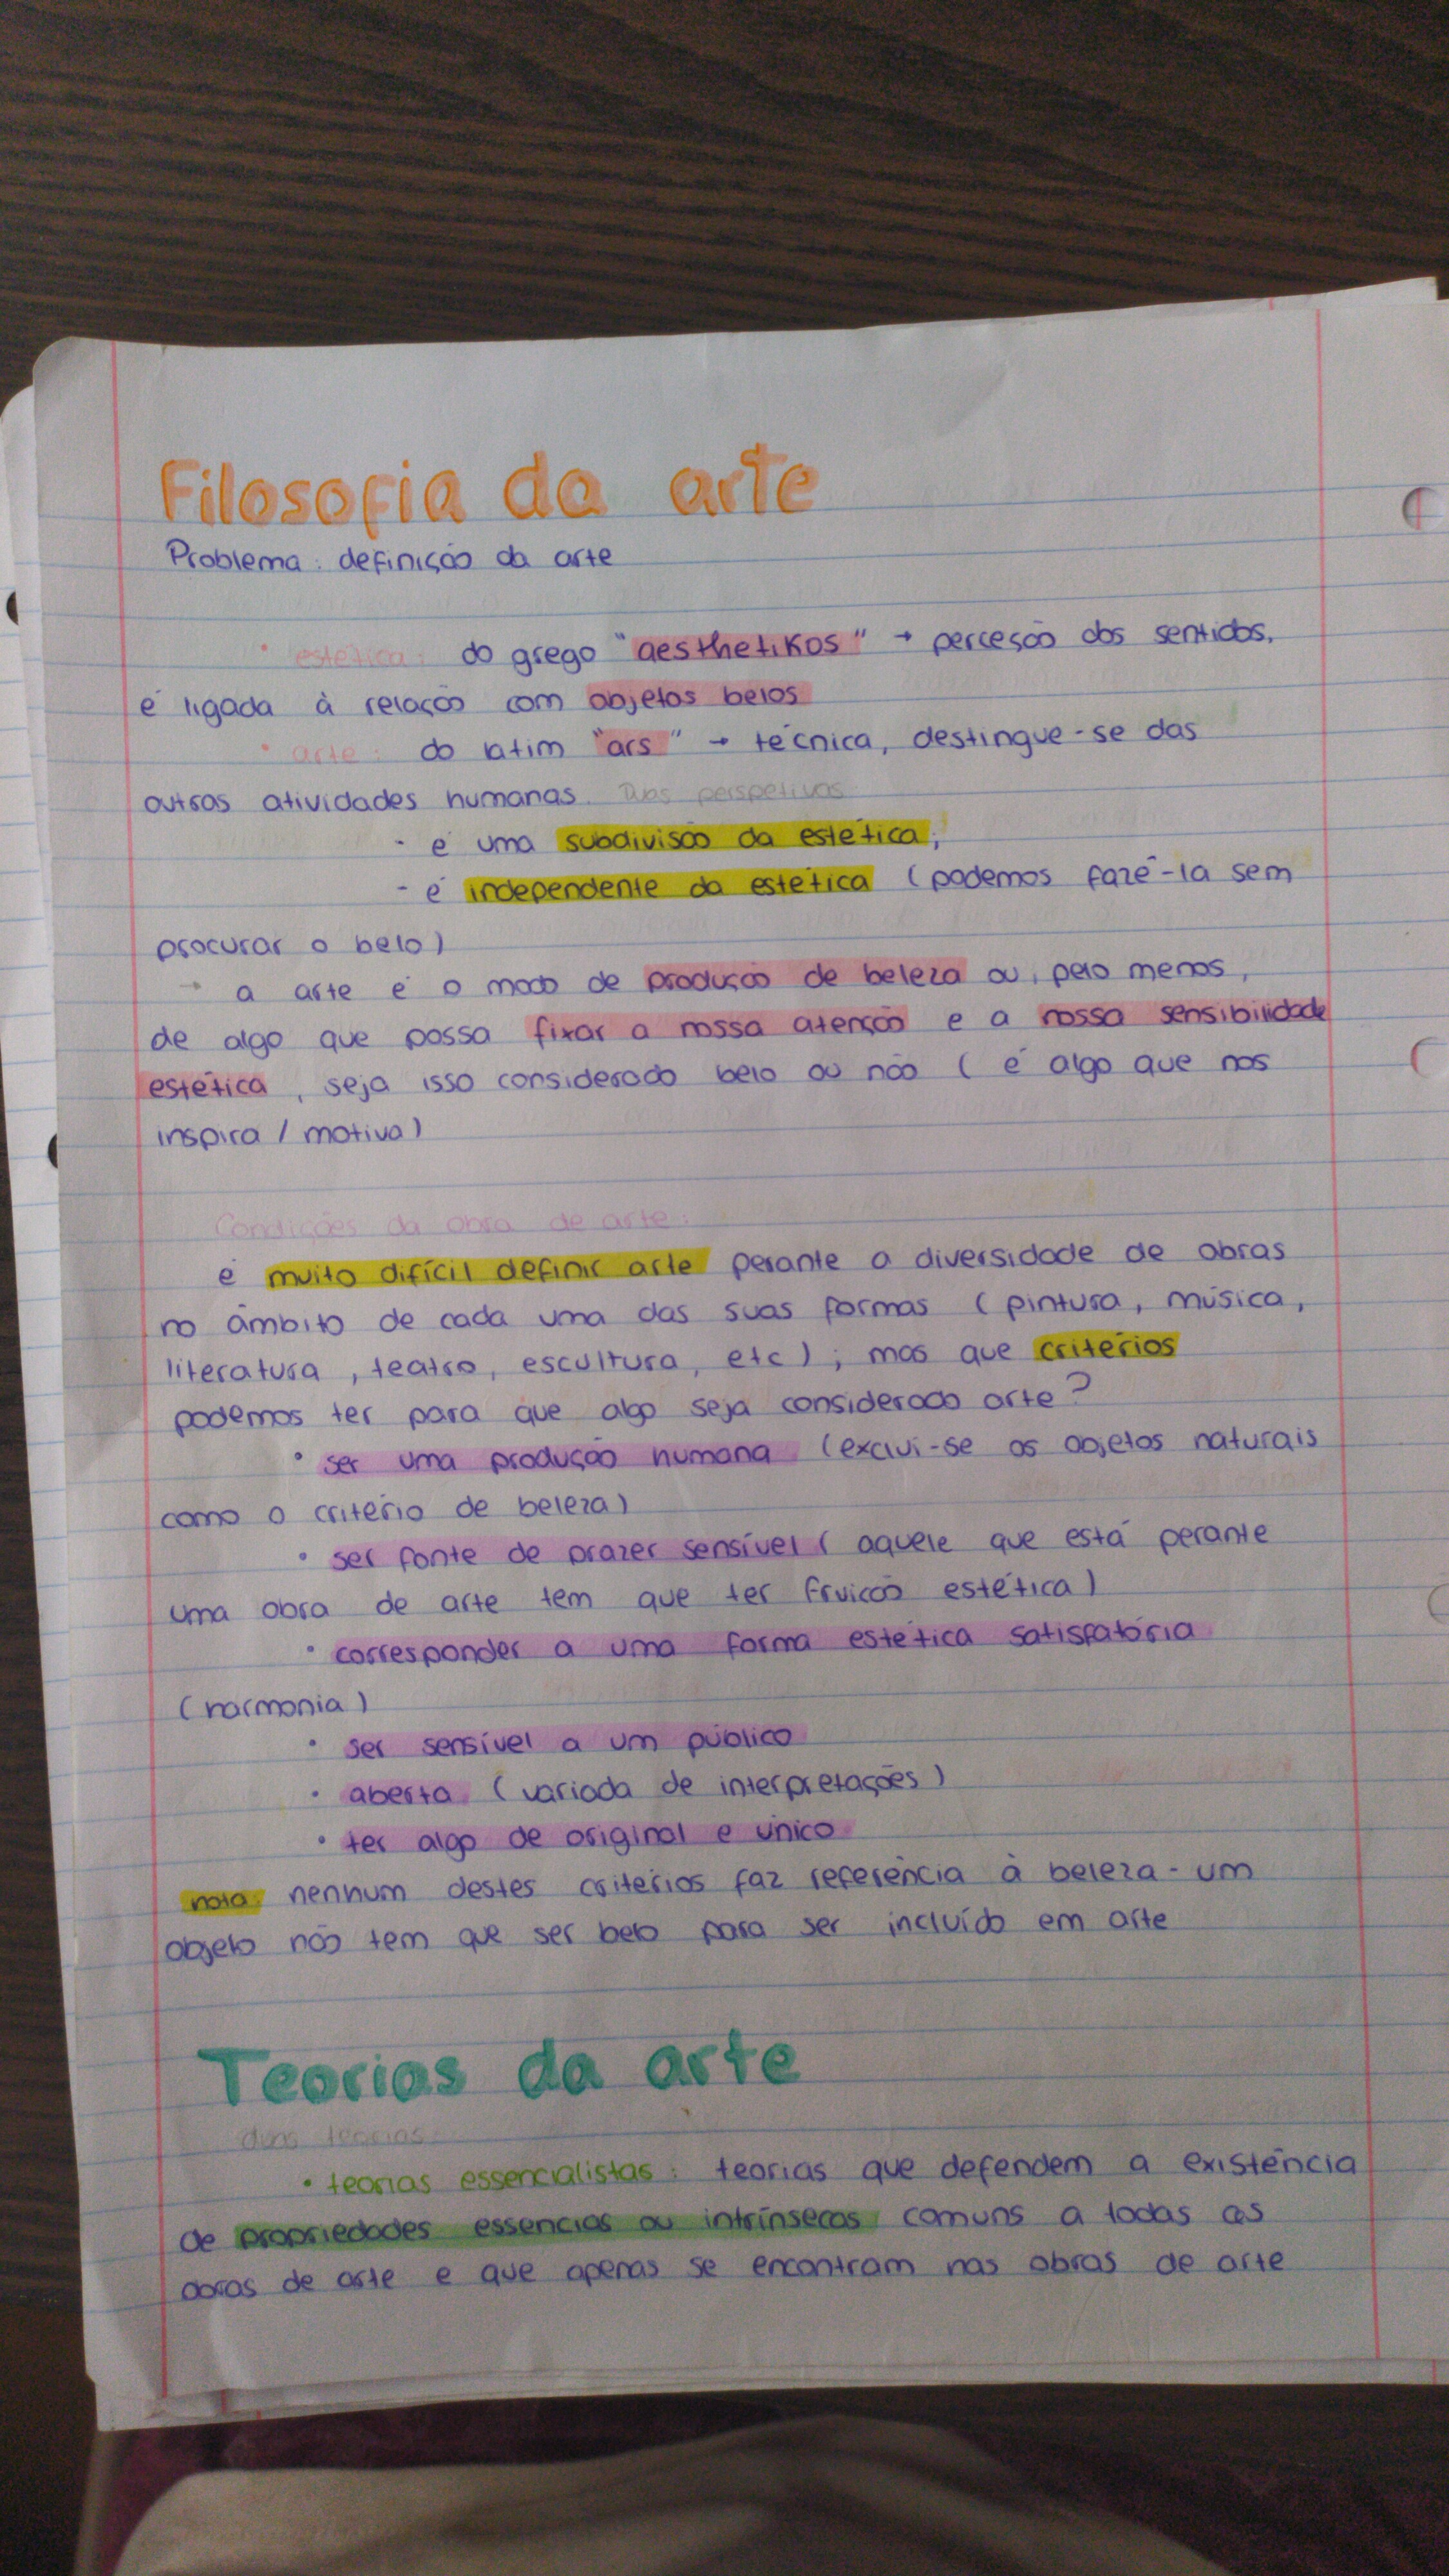 Filosofia da arte
Problema: definição da arte
• estética: do grego "aesthetikos" → perceção dos sentidos,
é ligada à relação com objetos belos
• arte: do latim "ars" → técnica, destingue-se das
outras atividades humanas. Duas perspetivas
- é uma subdivisão da estética;
- é independente da estética (podemos fazê-la sem
procurar o belo)
→ a arte é o modo de produção de beleza ou, pelo menos,
de algo que possa fixar a nossa atenção e a nossa sensibilidade
estética, seja isso considerado belo ou não (é algo que nos
inspira / motiva)
Condições da obra de arte:
é muito difícil definir arte perante a diversidade de obras
no âmbito de cada uma das suas formas (pintura, música,
literatura, teatro, escultura, etc); mas que critérios
podemos ter para que algo seja considerado arte?
• ser uma produção humana (exclui-se os objetos naturais
como o critério de beleza)
• ser fonte de prazer sensível (aquele que está perante
uma obra de arte tem que ter fruição estética)
• corresponder a uma forma estética satisfatória
(harmonia)
• ser sensível a um público
• aberta (variada de interpretações)
• ter algo de original e único
nota: nenhum destes critérios faz referência à beleza - um
objeto não tem que ser belo para ser incluído em arte
Teorias da arte
duas teorias:
• teorias essencialistas: teorias que defendem a existência
de propriedades essencias ou intrínsecas comuns a todas as
obras de arte e que apenas se encontram nas obras de arte